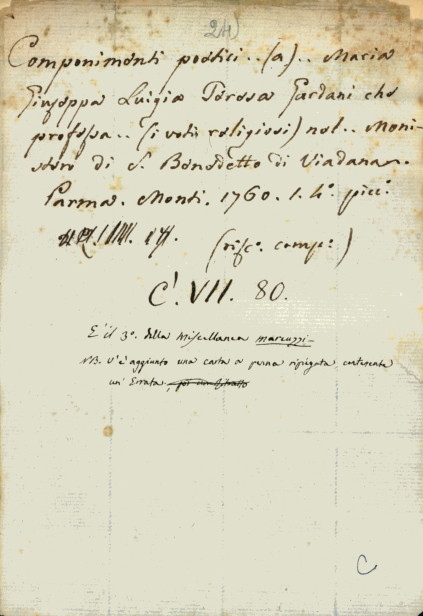 24)
Componimenti poetici.. (a).. Maria
Giuseppa Luigia Teresa Gardani che
professa.. (i voti religiosi) nel.. Moni-
stero di S. Benedetto di Viadana..
Parma. Monti. 1760. 1. 4°. picc°.
(risc°. comp°.)
C'. VII. 80.
E' il 3°. della Miscellanea Marcuzzi-
NB. V'è aggiunto una carta a penna ripiegata, contenente
un' Errata,
C